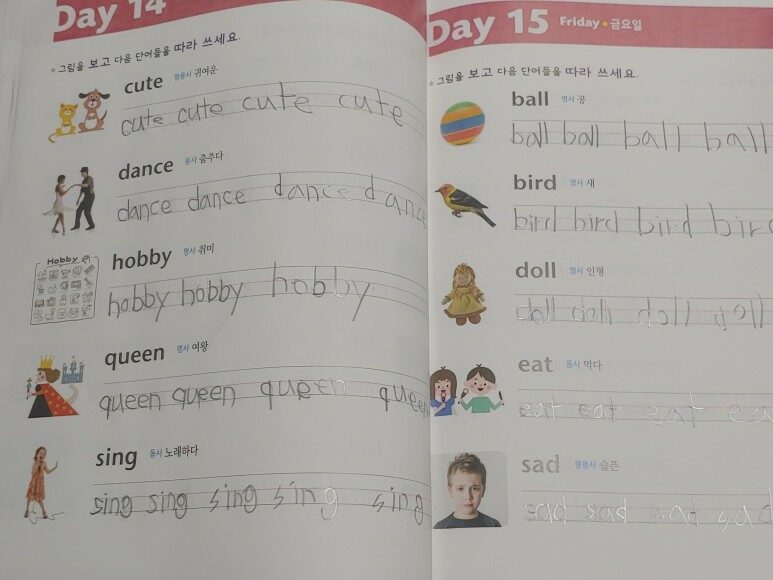 Day 14
* 그림을 보고 다음 단어들을 따라 쓰세요.
cute 형용사 귀여운
cute cute cute cute
dance 동사 춤추다
dance dance dance dance
Hobby
hobby 명사 취미
hobby hobby hobby
queen 명사 여왕
queen queen queen queen
sing 동사 노래하다
sing sing sing sing sing
Day 15 Friday • 금요일
* 그림을 보고 다음 단어들을 따라 쓰세요.
ball 명사 공
ball ball ball ball
bird 명사 새
bird bird bird bird
doll 명사 인형
doll doll doll doll
eat 동사 먹다
eat eat eat ea
sad 형용사 슬픈
sad sad sad sad